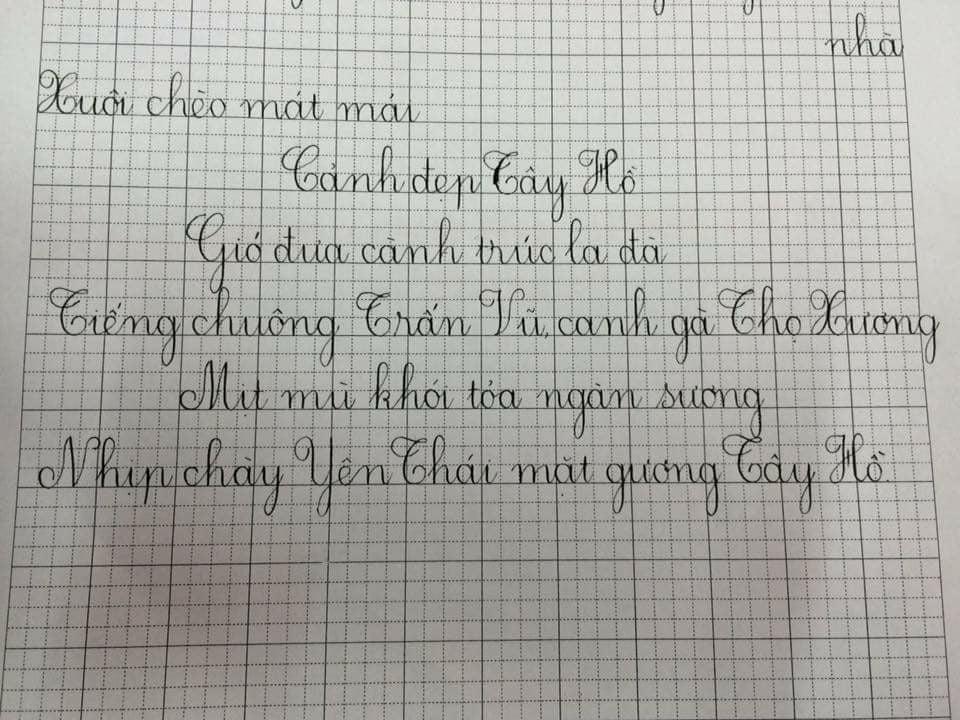 nhà
Xuôi chèo mát mái
Cảnh đẹp Tây Hồ
Gió đưa cành trúc la đà
Tiếng chuông Trấn Vũ, canh gà Thọ Xương
Mịt mù khói tỏa ngàn sương
Nhịp chày Yên Thái mặt gương Tây Hồ.